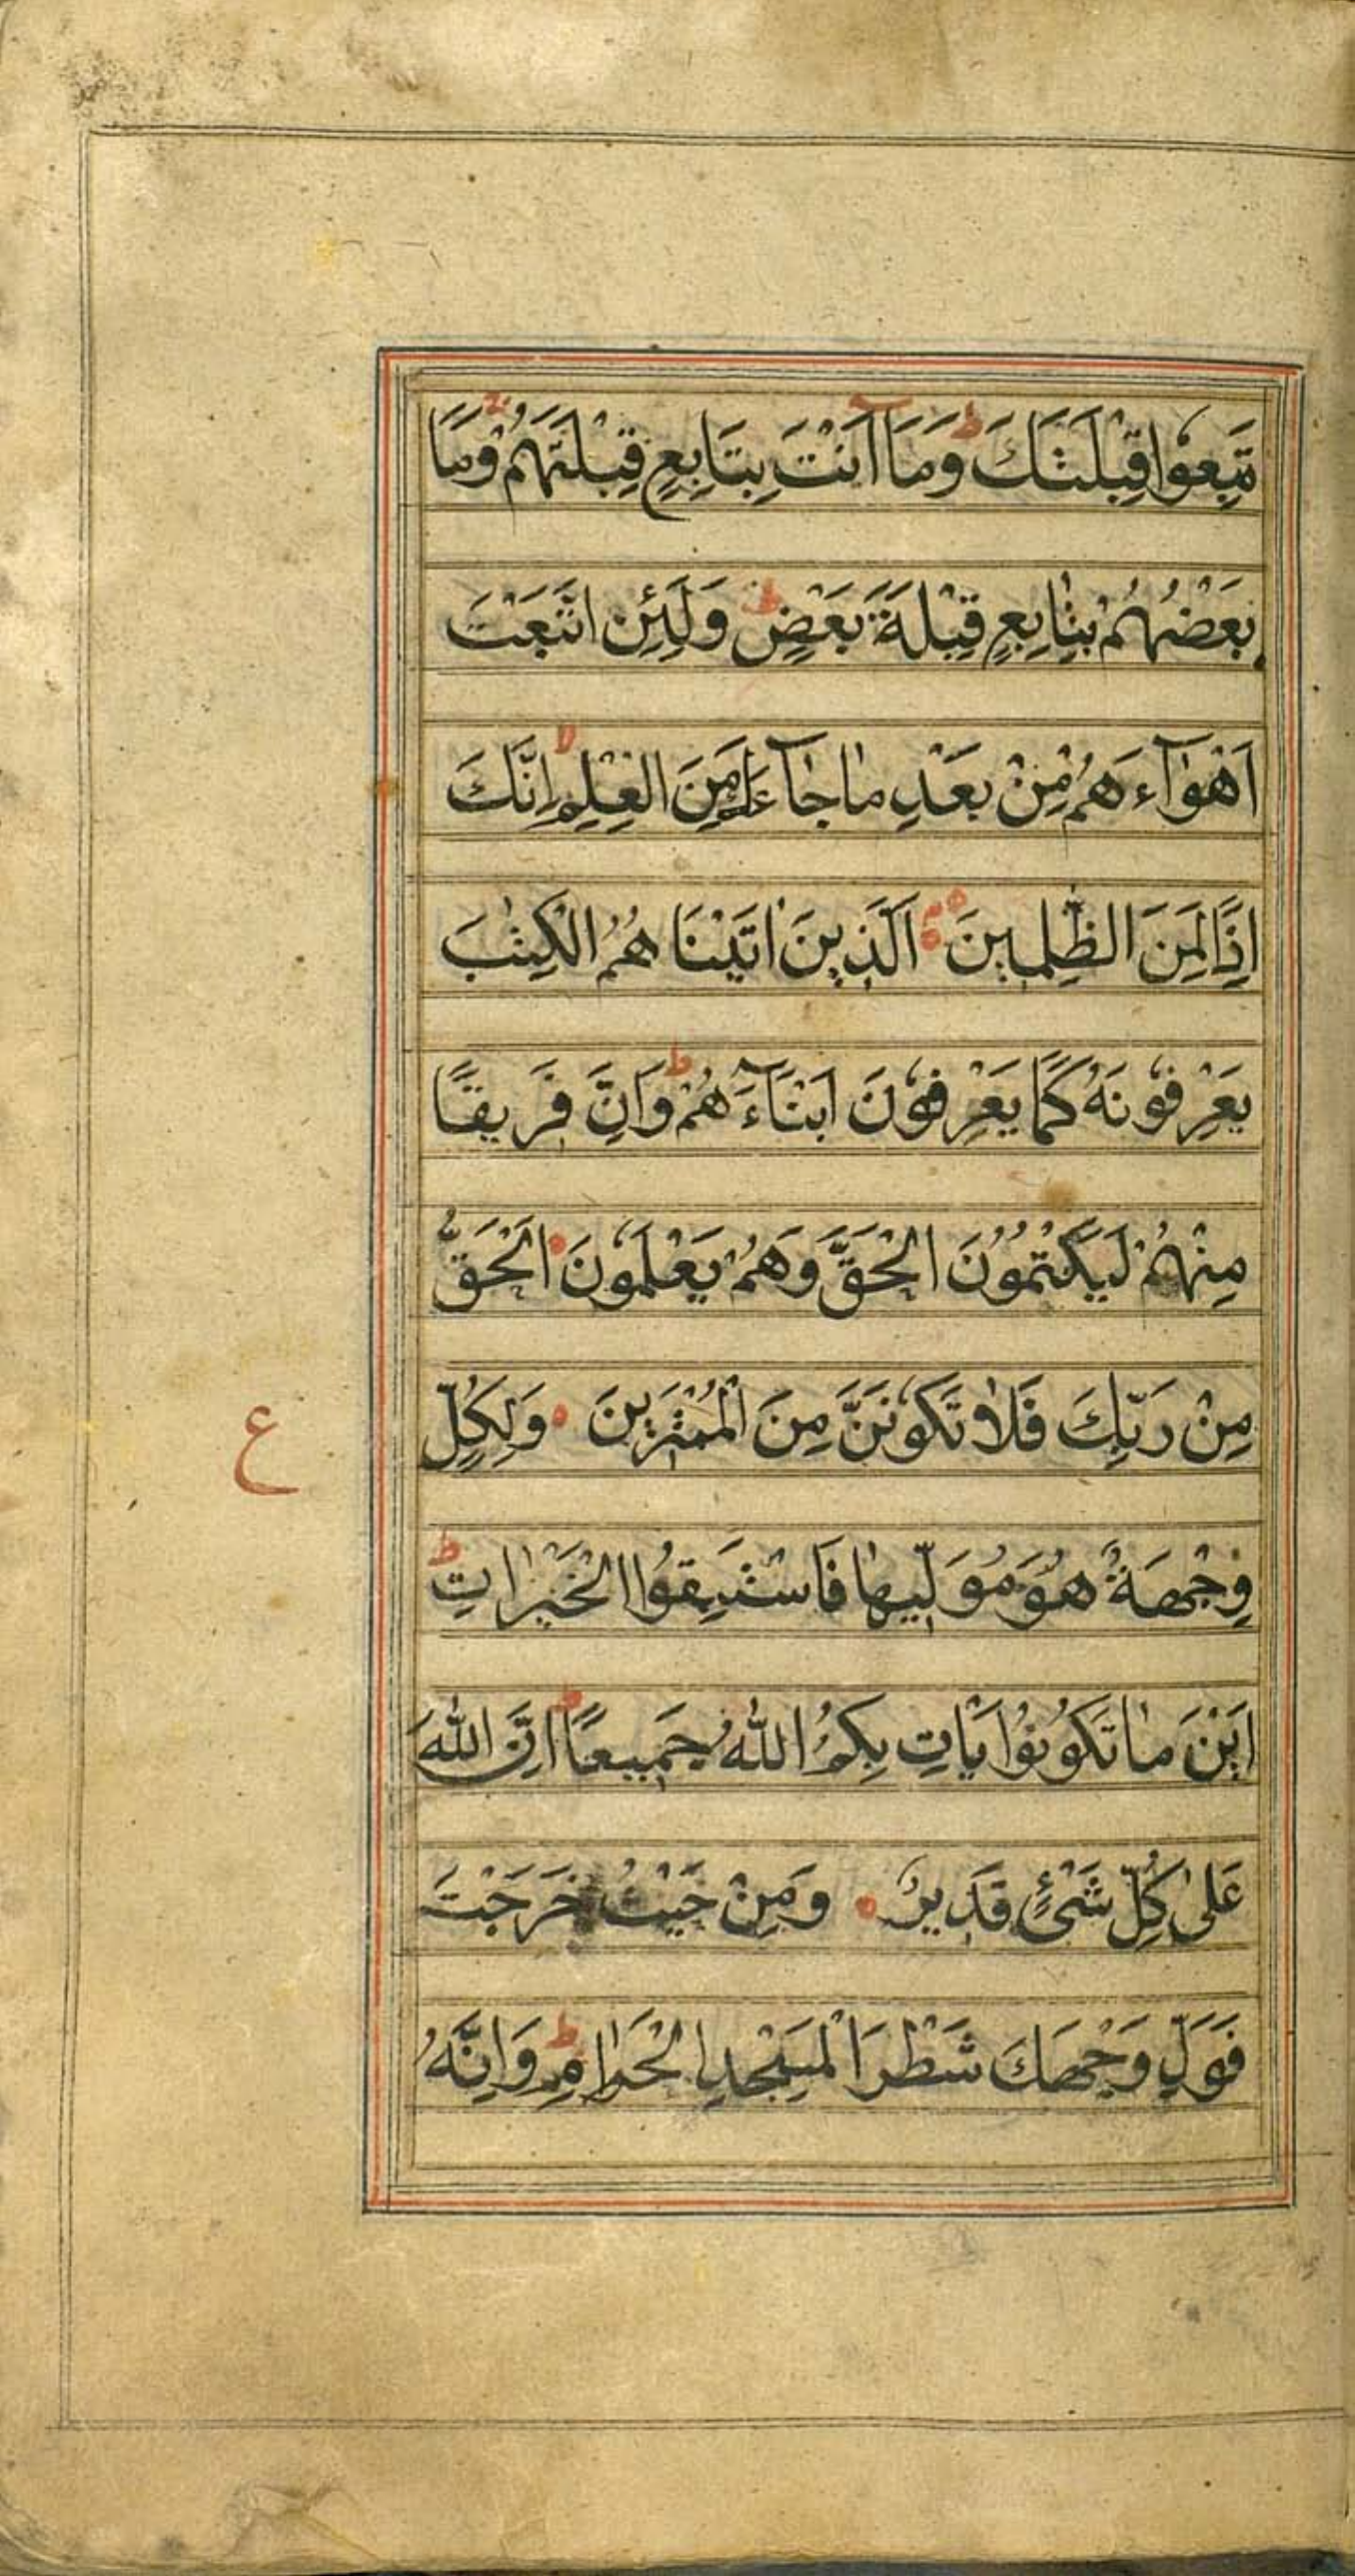 تَبِعُوا قِبْلَتَكَ ط وَمَآ اَنْتَ بِتَابِعٍ قِبْلَتَهُمْ وَمَا
بَعْضُهُمْ بِتَابِعٍ قِبْلَةَ بَعْضٍ ط وَلَئِنِ اتَّبَعْتَ
اَهْوَآءَهُمْ مِنْ بَعْدِ مَا جَآءَكَ مِنَ الْعِلْمِ لا اِنَّكَ
اِذًا لَمِنَ الظّٰلِمِينَ اَلَّذِينَ اٰتَيْنَاهُمُ الْكِتٰبَ
يَعْرِفُونَهُ كَمَا يَعْرِفُونَ اَبْنَآءَهُمْ ط وَاِنَّ فَرِيقًا
مِنْهُمْ لَيَكْتُمُونَ الْحَقَّ وَهُمْ يَعْلَمُونَ اَلْحَقُّ
مِنْ رَبِّكَ فَلَا تَكُونَنَّ مِنَ الْمُمْتَرِينَ وَلِكُلٍّ
ع
وِجْهَةٌ هُوَ مُوَلِّيهَا فَاسْتَبِقُوا الْخَيْرَاتِ ط
اَيْنَ مَا تَكُونُوا يَأْتِ بِكُمُ اللّٰهُ جَمِيعًا اِنَّ اللّٰهَ
عَلٰى كُلِّ شَیْءٍ قَدِيرٌ وَمِنْ حَيْثُ خَرَجْتَ
فَوَلِّ وَجْهَكَ شَطْرَ الْمَسْجِدِ الْحَرَامِ ط وَاِنَّهُ